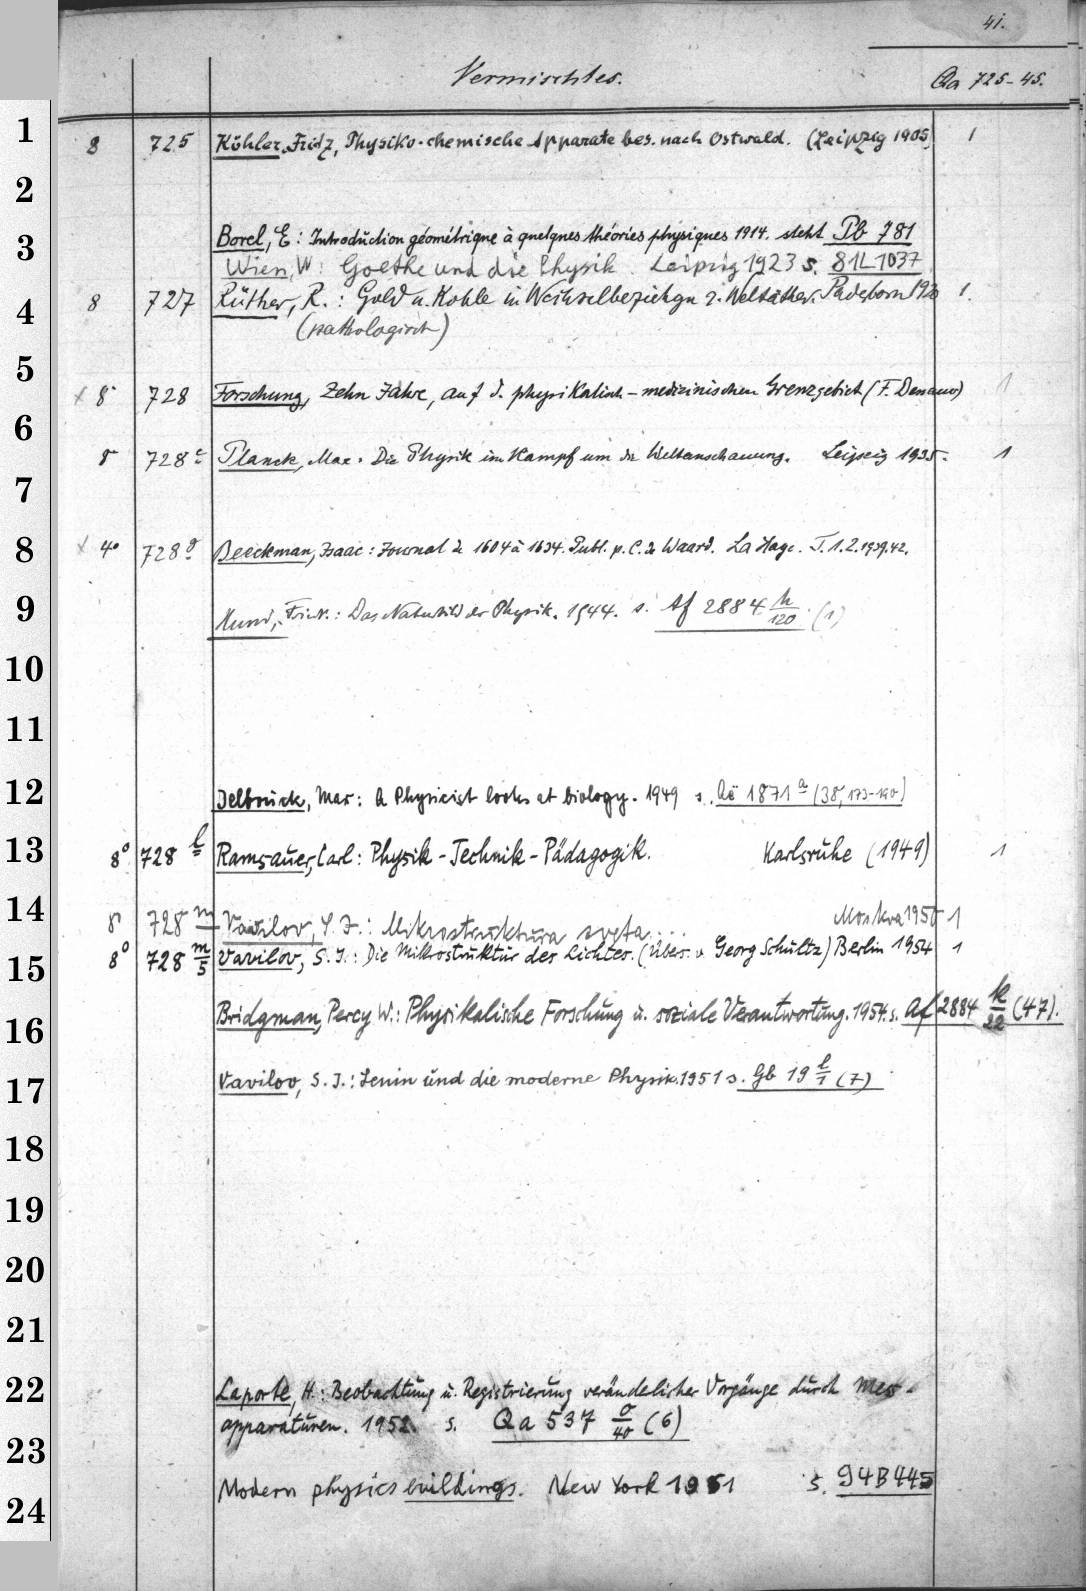 41.
Vermischtes. Qa 725-45.
1
8 725 Köhler, Fritz, Physiko-chemische Apparate bes. nach Ostwald. (Leipzig 1905) 1
2
3 Borel, E: Introduction géométrique à quelques théories physiques 1914. steht Pb 781
Wien, W: Goethe und die Physik. Leipzig 1923 s. 81L1037
4 8 727 Rüther, R.: Gold u. Kohle in Wechselbeziehgn z. Weltäther. Paderborn 1 1.
(pathologisch)
5
8° 728 Forschung, Zehn Jahre, auf d. physikalisch-medizinischen Grenzgebiet (F. Dessauer) 1
6
8° 728 c Planck, Max. Die Physik im Kampf um die Weltanschauung. Leipzig 1935. 1
7
8 4° 728 g Beeckman, Isaac: Journal de 1604 à 1634. Publ. p. C. de Waard. La Haye. T. 1.2. 1939.42.
9 Hund, Friedr.: Das Naturbild der Physik. 1944. s. Af 2884 h/120 (1)
10
11
12 Delbrück, Max: A Physicist looks at biology. 1949 s. Aë 1871 a (38, 173-190)
13 8° 728 l Ramsauer, Carl: Physik-Technik-Pädagogik. Karlsruhe (1949) 1
14 8° 728 m Vavilov, S. I.: Mikrostruktura sveta.... Moskva 1950 1
15 8° 728 m/5 Vavilov, S. I.: Die Mikrostruktur des Lichtes. (Übers. v. Georg Schultz) Berlin 1954 1
16 Bridgman, Percy W.: Physikalische Forschung u. soziale Verantwortung. 1954. s. Af 2884 k/22 (47).
17 Vavilov, S. I.: Lenin und die moderne Physik. 1951 s. Gb 19 l/1 (7)
18
19
20
21
22 Laporte, H.: Beobachtung u. Registrierung veränderlicher Vorgänge durch Mess-
apparaturen. 1952. s. Qa 537 o/40 (6)
23
24 Modern physics buildings. New York 1961 s. 94B445